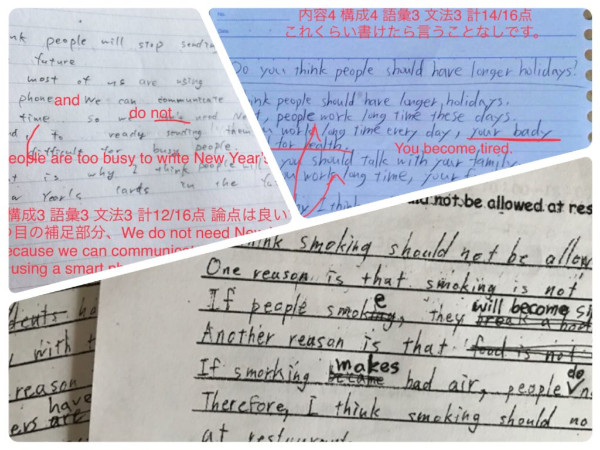 ink people will stop sendin
future
most of us are using
phone and we can communicate
time so we do not need Ne
d to ready sending them
difficult for busy people.
people are too busy to write New Year's
t is why I think people will
w Year's cards in the fu
構成3 語彙3 文法3 計12/16点 論点は良い
目の補足部分、We do not need Ne
ecause we can communic
using a smart ph
内容4 構成4 語彙3 文法3 計14/16点
これくらい書けたら言うことなしです。
Do you think people should have longer holidays?
ink people should have longer holidays.
people work long time these days.
work long time every day, your bady
for health.
You become tired.
you should talk with your family.
work long time, your f
I think
uld not be allowed at res
hink smoking should not be allow
One reason is that smoking is not
If people smoke, they will become si
Another reason is that food is not
If smorking makes became bad air, people do n
Therefore, I think smoking should no
at restaurant
dents ha
with t
reason
have
ers are